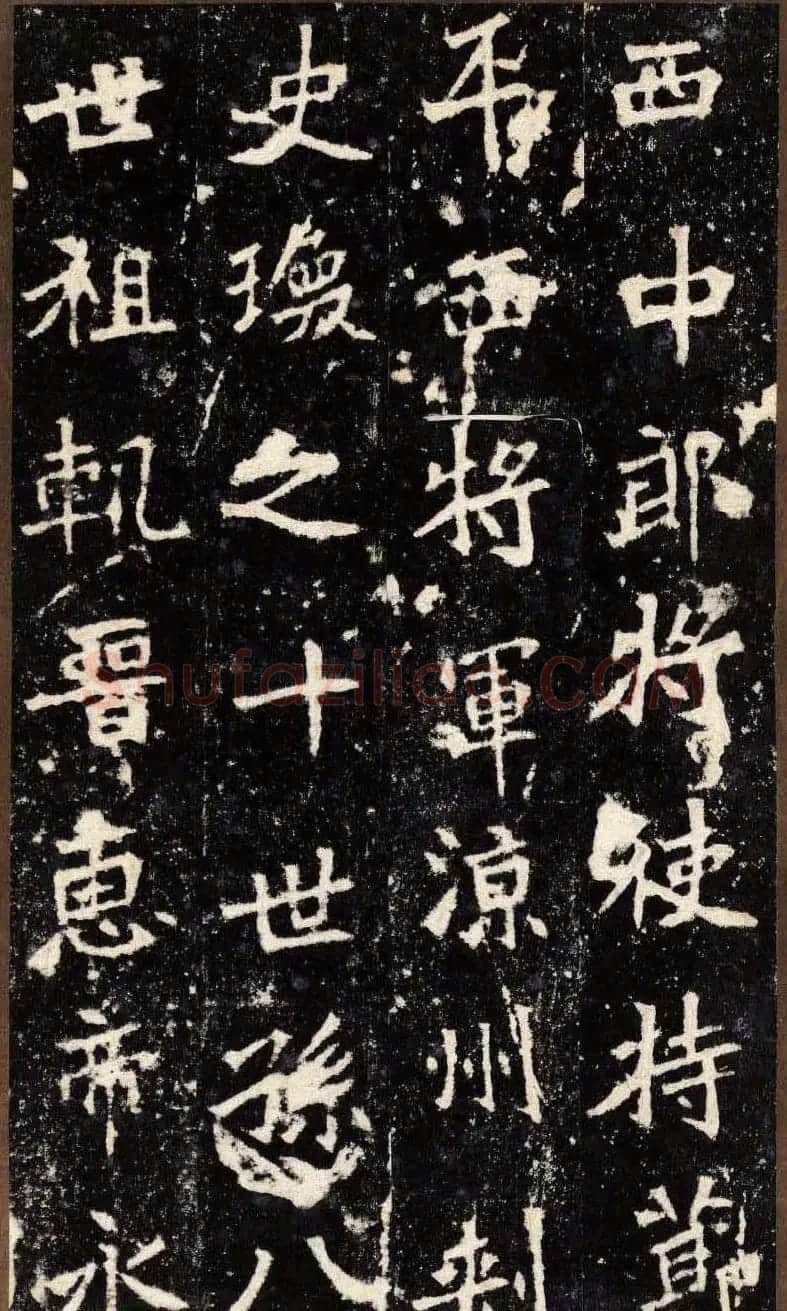 西中郎將使持節
平西將軍涼州刺
史瓊之十世孫八
世祖軌晉惠帝永
shufaziliao.COM